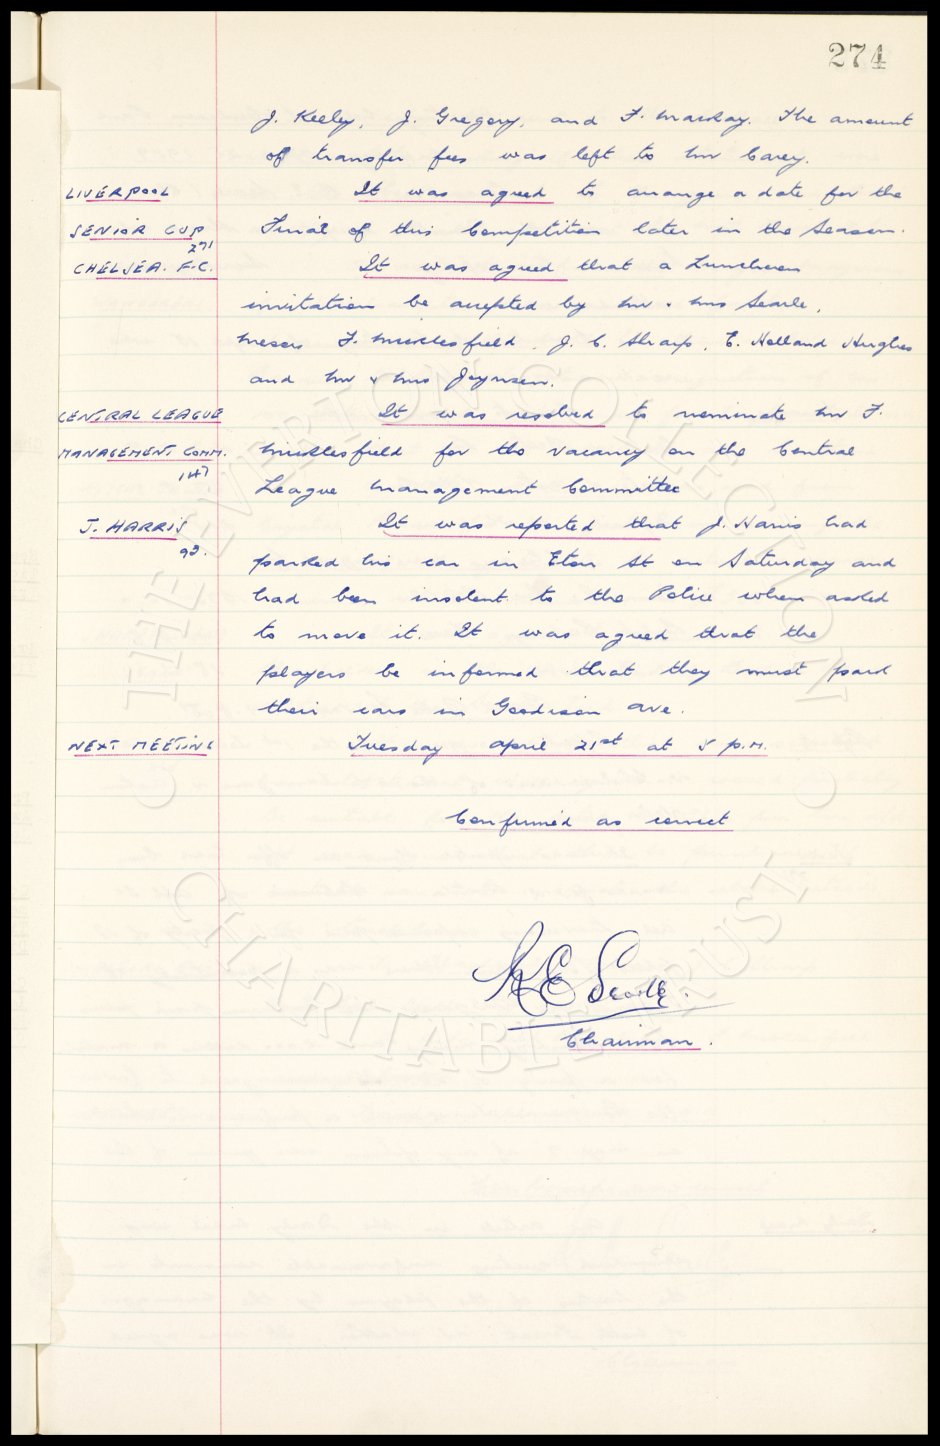 274
J. Keeley, J. Gregory, and F. Mackay. The amount
of transfer fees was left to Mr Carey.
LIVERPOOL It was agreed to arrange a date for the
SENIOR CUP Final of this Competition later in the Season.
271
CHELSEA. F.C. It was agreed that a Luncheon
invitation be accepted by Mr & Mrs Searle,
Messrs F. Micklesfield, J. C. Sharp, E. Holland Hughes
and Mr & Mrs Joynson.
CENTRAL LEAGUE It was resolved to nominate Mr F.
MANAGEMENT COMM. Micklesfield for the vacancy on the Central
147
League Management Committee
J. HARRIS It was reported that J. Harris had
93.
parked his car in Eton St on Saturday and
had been insolent to the Police when asked
to move it. It was agreed that the
players be informed that they must park
their cars in Goodison Ave.
NEXT MEETING Tuesday April 21st at 5 p.m.
Confirmed as correct
R E Searle.
Chairman.
THE EVERTON COLLECTION
CHARITABLE TRUST